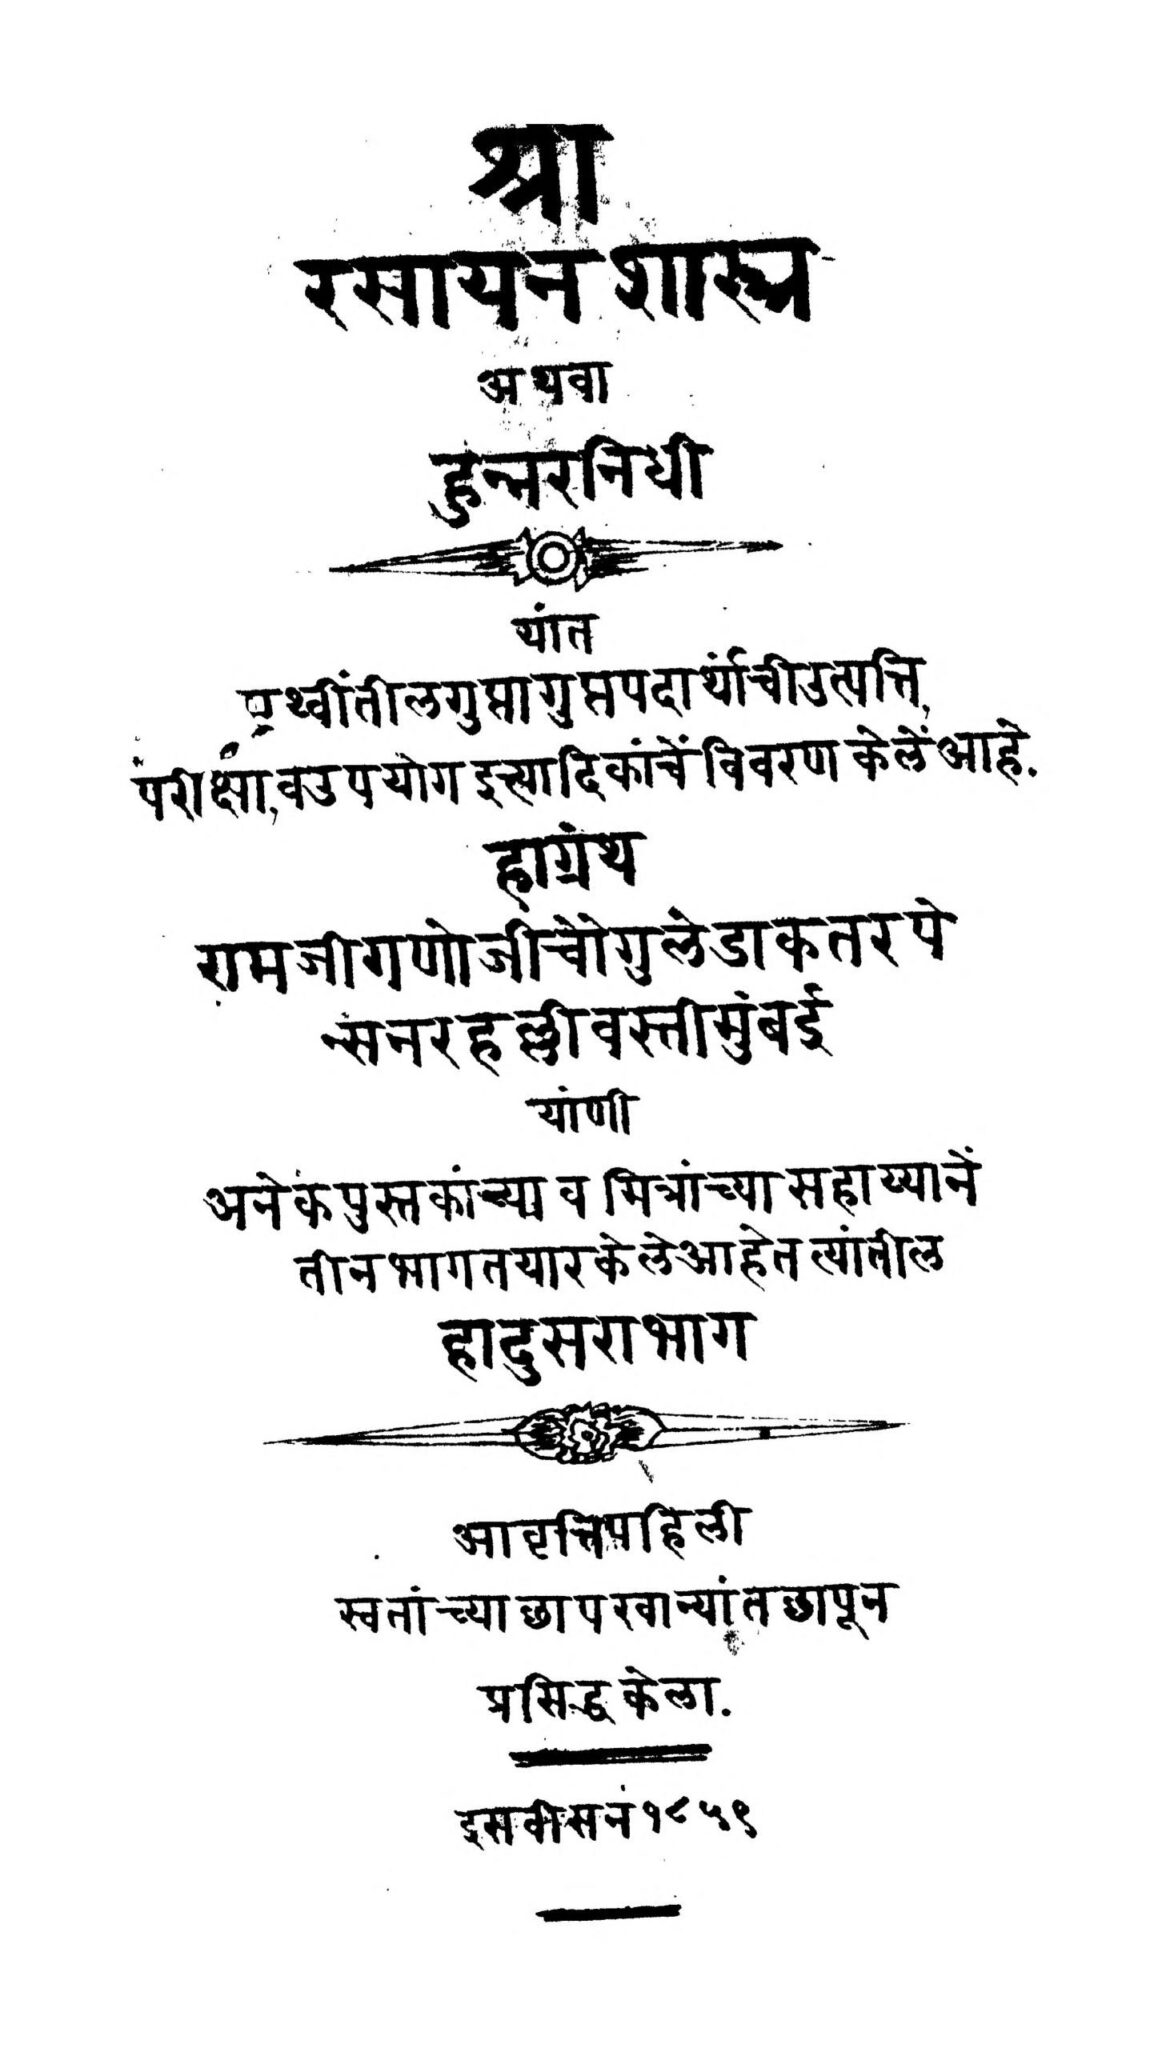 श्री
रसायन शास्त्र
अथवा
हुन्नरनिधी
यांत
पृथ्वींतीलगुप्तागुप्तपदार्थांचीउत्पत्ति,
परीक्षा,वउपयोग इत्यादिकांचें विवरण केलें आहे.
हाग्रंथ
रामजीगणोजीचौगुलेडाकतरपे
न्सनरहल्लीवस्तीमुंबई
यांणी
अनेकपुस्तकांच्या व मित्रांच्यासहाय्यानें
तीनभागतयारकेलेआहेत त्यांतील
हादुसराभाग
आवृत्तिपहिली
स्वतांच्याछापखान्यांतछापून
प्रसिद्धकेला.
इसवीसन१८५९